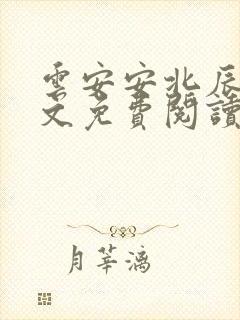 雲安安北辰
文免費閱讀
月華漓